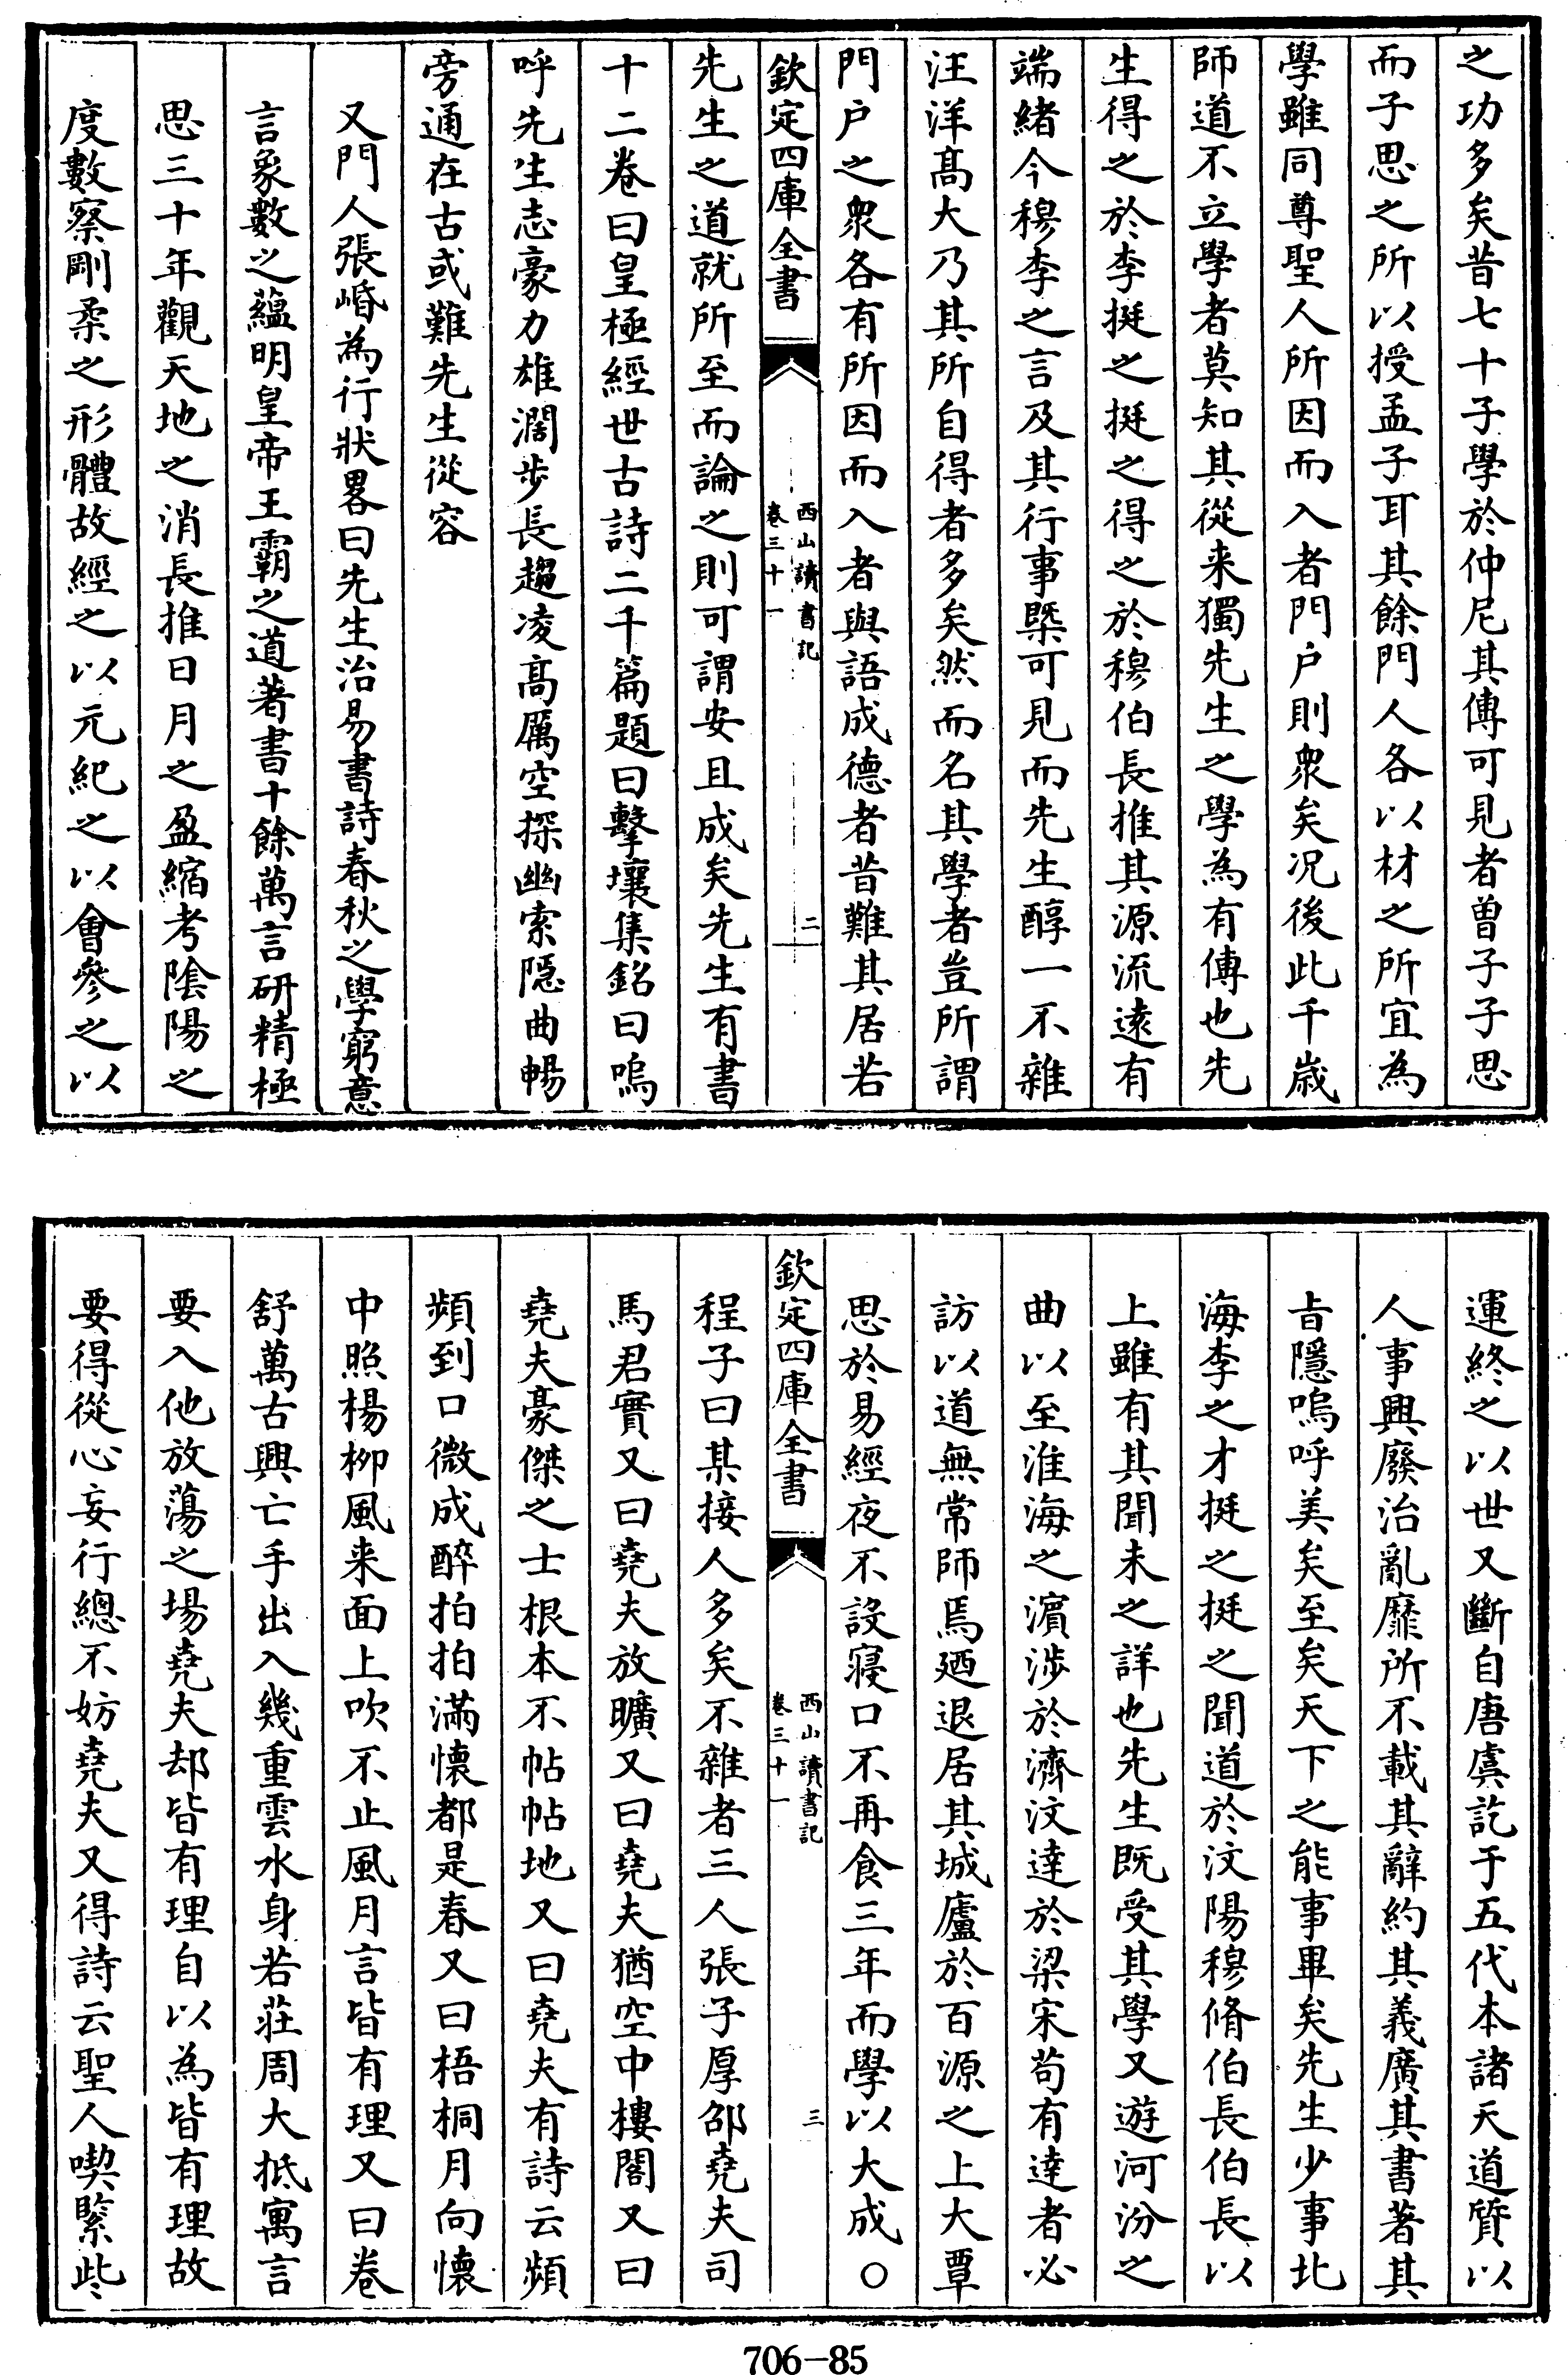 之功多矣昔七十子學於仲尼其傳可見者曽子子思
而子思之所以授孟子耳其餘門人各以材之所宜為
學雖同尊聖人所因而入者門户則衆矣况後此千歳
師道不立學者莫知其從来獨先生之學為有傳也先
生得之於李挺之挺之得之於穆伯長推其源流逺有
端緒今穆李之言及其行事槩可見而先生醇一不雜
汪洋髙大乃其所自得者多矣然而名其學者豈所謂
門户之衆各有所因而入者與語成德者昔難其居若
欽定四庫全書
西山讀書記
卷三十一
二
先生之道就所至而論之則可謂安且成矣先生有書
十二卷曰皇極經世古詩二千篇題曰擊壤集銘曰嗚
呼先生志豪力雄濶步長趨凌髙厲空探幽索隠曲暢
旁通在古或難先生從容
又門人張㟭為行狀畧曰先生治易書詩春秋之學窮意
言象數之蘊明皇帝王霸之道著書十餘萬言研精極
思三十年觀天地之消長推日月之盈縮考陰陽之
度數察剛柔之形體故經之以元紀之以會參之以
運終之以世又斷自唐虞訖于五代本諸天道質以
人事興廢治亂靡所不載其辭約其義廣其書著其
㫖隱嗚呼美矣至矣天下之能事畢矣先生少事北
海李之才挺之挺之聞道於汶陽穆脩伯長伯長以
上雖有其聞未之詳也先生既受其學又遊河汾之
曲以至淮海之濵涉於濟汶達於梁宋茍有達者必
訪以道無常師焉廼退居其城廬於百源之上大覃
思於易經夜不設寢口不再食三年而學以大成○
欽定四庫全書
西山讀書記
卷三十一
三
程子曰某接人多矣不雜者三人張子厚邵堯夫司
馬君實又曰堯夫放曠又曰堯夫猶空中樓閣又曰
堯夫豪傑之士根本不帖帖地又曰堯夫有詩云頻
頻到口微成醉拍拍滿懷都是春又曰梧桐月向懷
中照楊柳風来面上吹不止風月言皆有理又曰卷
舒萬古興亡手出入幾重雲水身若莊周大抵寓言
要入他放蕩之場堯夫却皆有理自以為皆有理故
要得從心妄行總不妨堯夫又得詩云聖人喫緊些
706-85